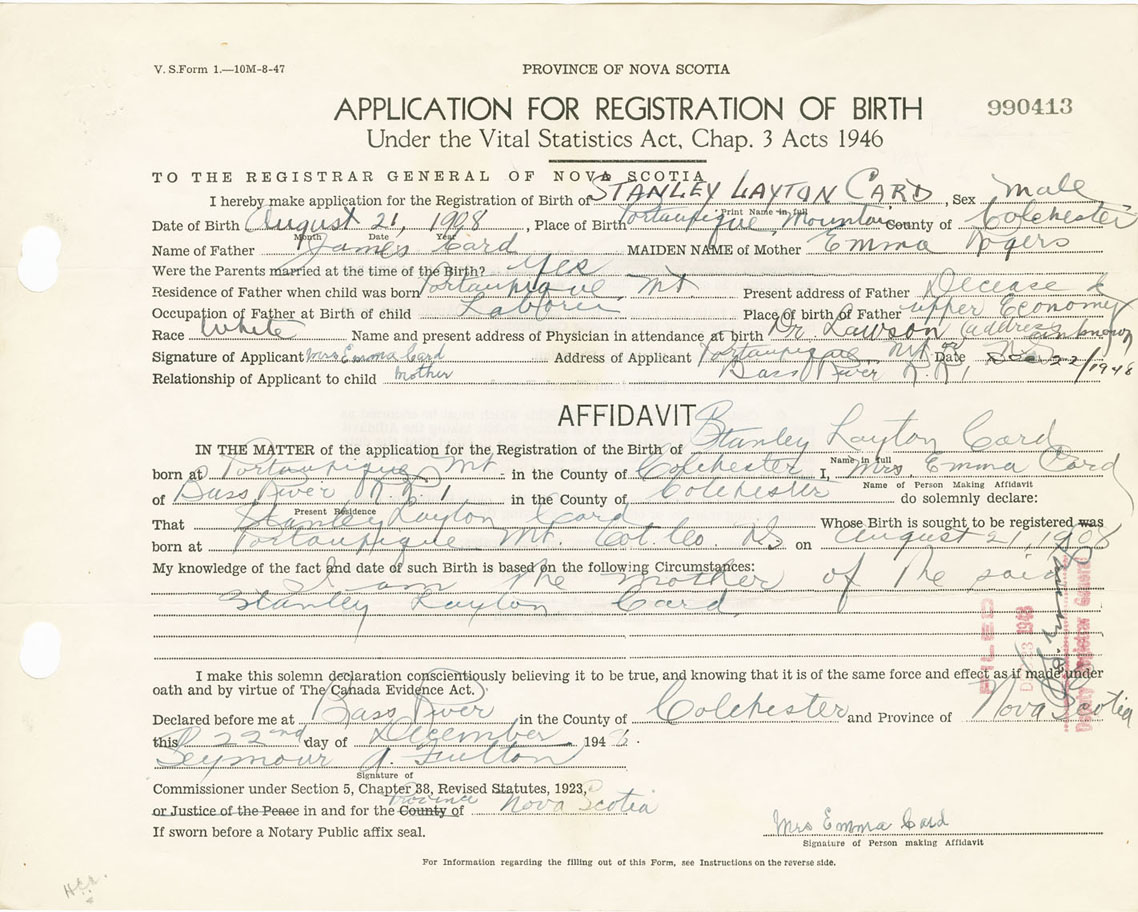 V. S.Form 1.—10M-8-47
PROVINCE OF NOVA SCOTIA
APPLICATION FOR REGISTRATION OF BIRTH
990413
Under the Vital Statistics Act, Chap. 3 Acts 1946
TO THE REGISTRAR GENERAL OF NOVA SCOTIA
I hereby make application for the Registration of Birth of STANLEY LAYTON CARD, Sex Male
Print Name in full
Date of Birth August 21, 1908, Place of Birth Portaupique Mountain County of Colchester
Month Date Year
Name of Father James Card MAIDEN NAME of Mother Emma Rogers
Were the Parents married at the time of the Birth? Yes
Residence of Father when child was born Portaupique Mt. Present address of Father Deceased
Occupation of Father at Birth of child Laborer Place of birth of Father upper Economy
Race White Name and present address of Physician in attendance at birth Dr. Lawson (address unknown
Signature of Applicant Mrs Emma Card Address of Applicant Portaupique Mt Date Dec 22/1948
Bass River R.R.1
Relationship of Applicant to child Mother
AFFIDAVIT
IN THE MATTER of the application for the Registration of the Birth of Stanley Layton Card
Name in full
born at Portaupique Mt. in the County of Colchester I, Mrs. Emma Card
Name of Person Making Affidavit
of Bass River R.R.1 in the County of Colchester do solemnly declare:
Present Residence
That Stanley Layton Card Whose Birth is sought to be registered was
born at Portaupique Mt. Col. Co. N.S on August 21, 1908
My knowledge of the fact and date of such Birth is based on the following Circumstances:
I am the Mother of the said
Stanley Layton Card.
FILED
1948
Deputy Registrar General
I make this solemn declaration conscientiously believing it to be true, and knowing that it is of the same force and effect as if made under
oath and by virtue of The Canada Evidence Act.
Declared before me at Bass River in the County of Colchester and Province of Nova Scotia
this 22nd day of December 194
Seymour A. Fulton
Signature of
Commissioner under Section 5, Chapter 38, Revised Statutes, 1923,
or Justice of the Peace in and for the County of Province Nova Scotia
If sworn before a Notary Public affix seal.
Mrs Emma Card
Signature of Person making Affidavit
For Information regarding the filling out of this Form, see Instructions on the reverse side.